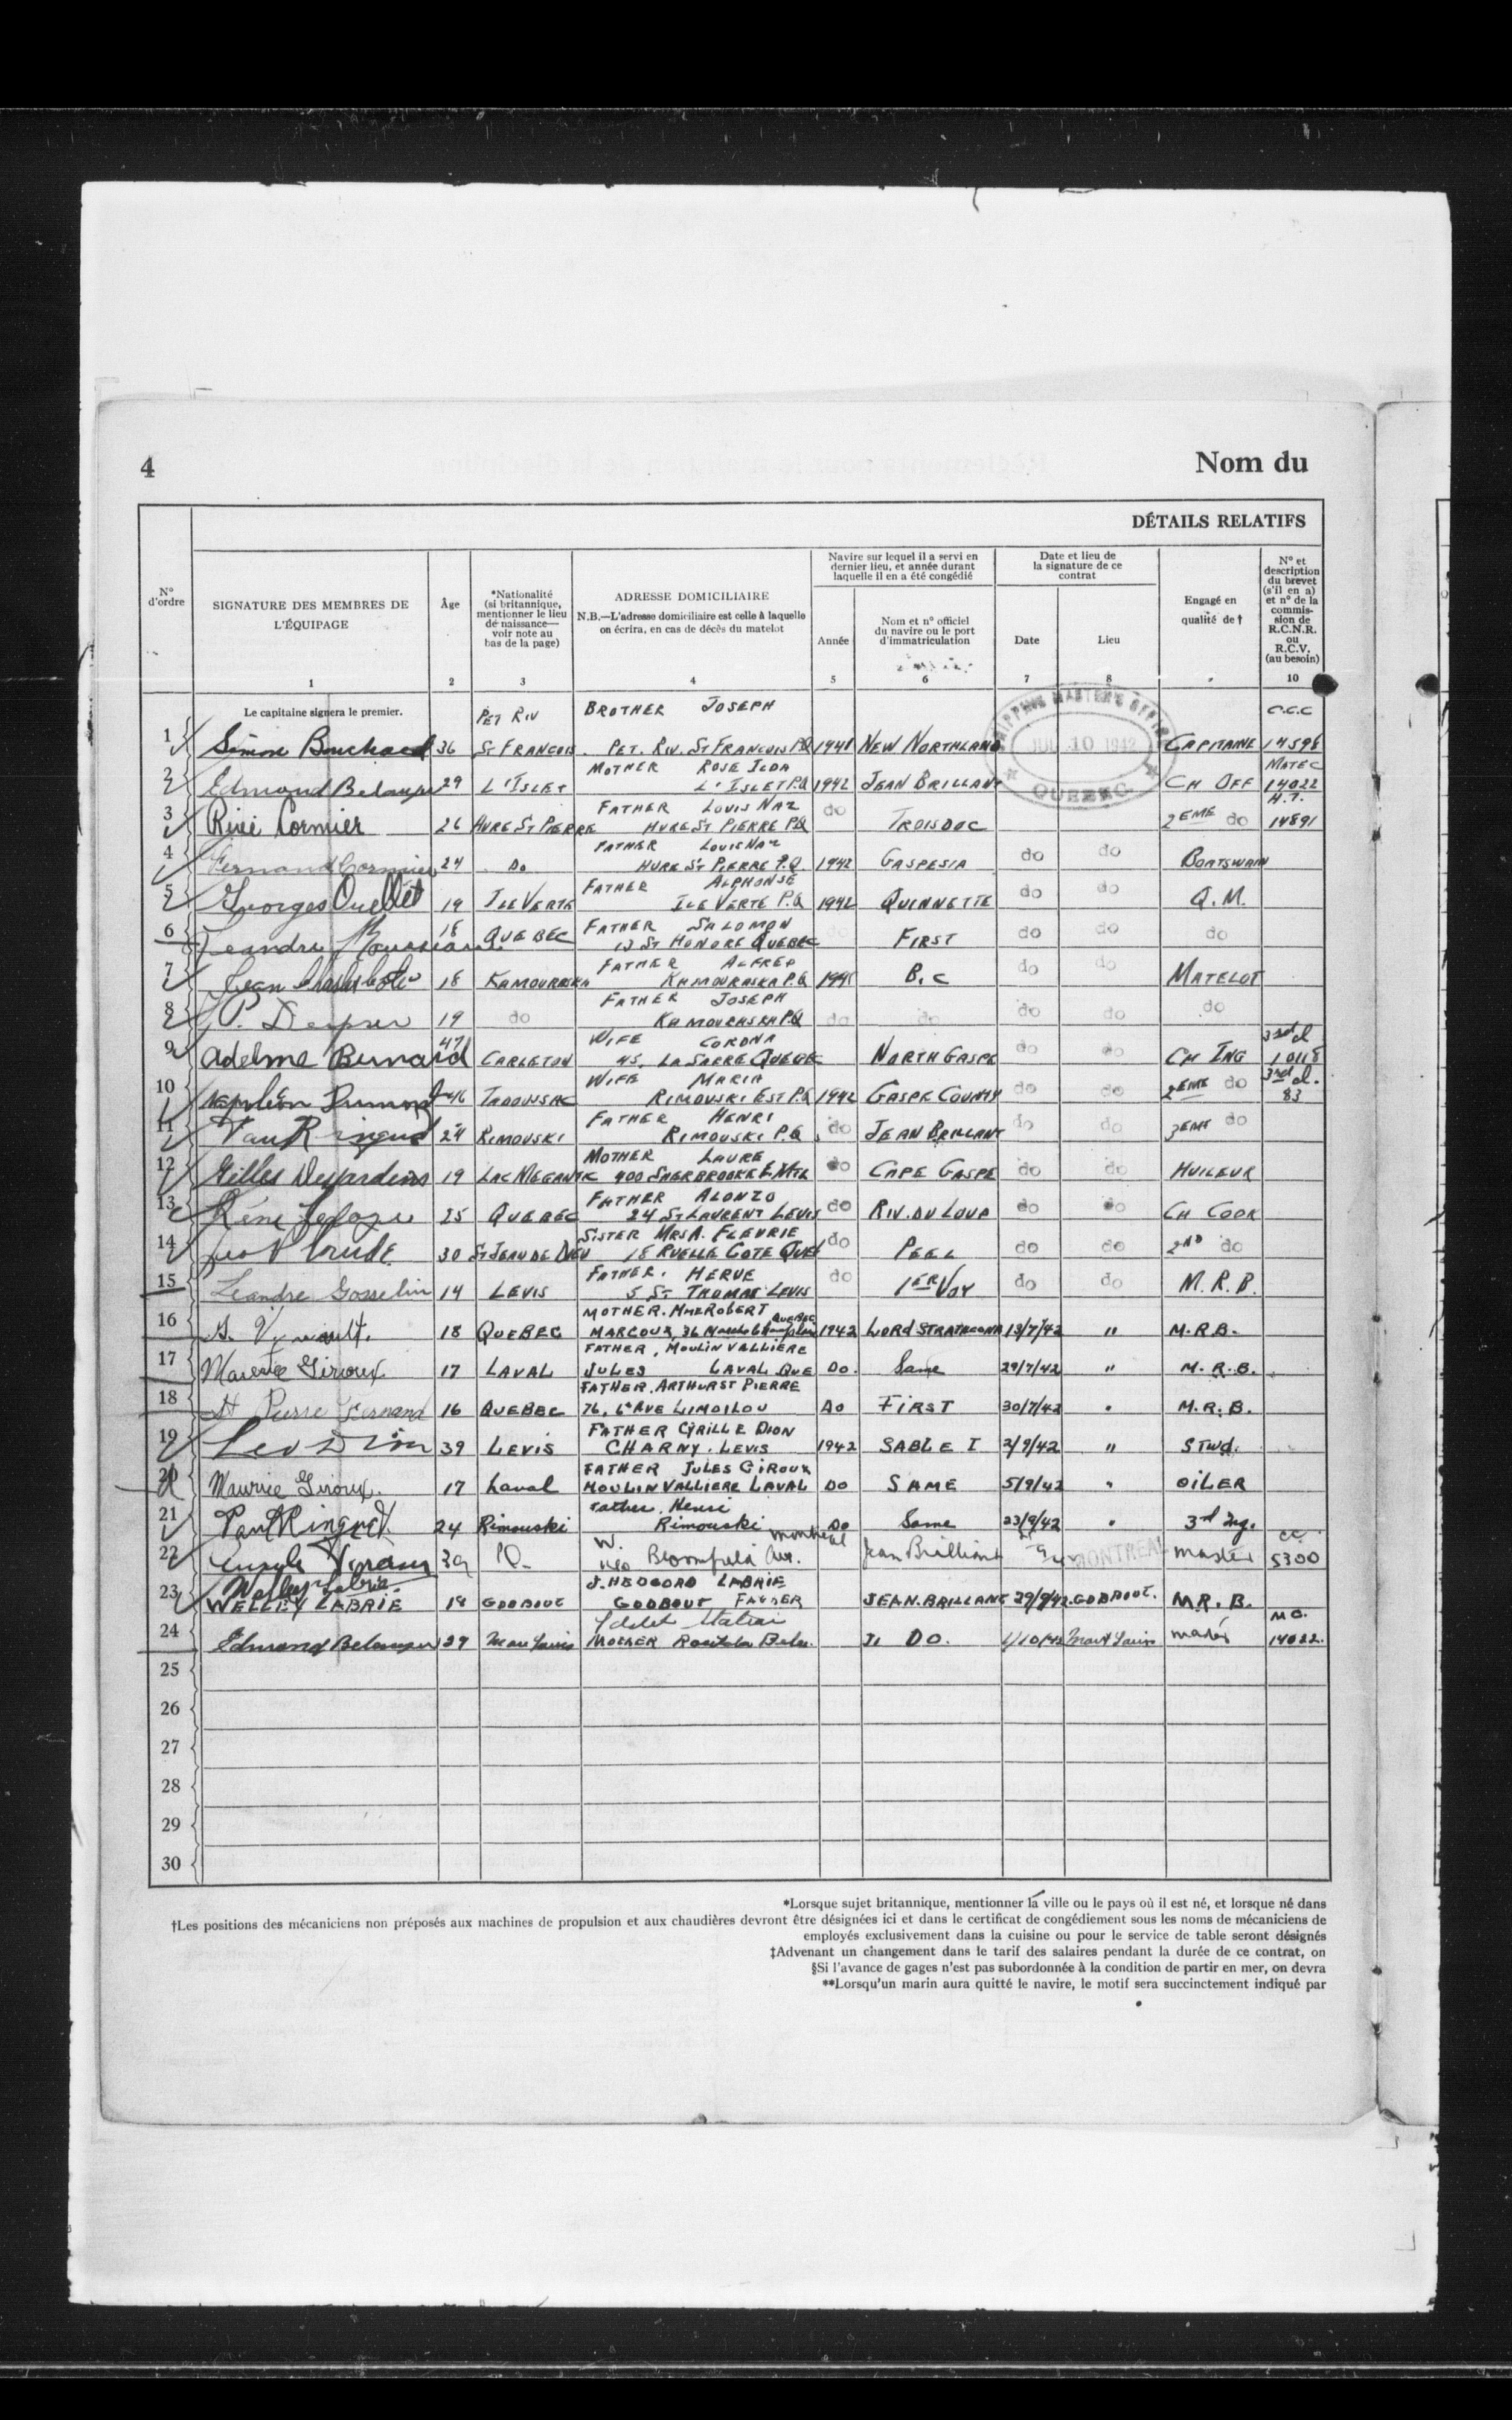 4
Nom du
DÉTAILS RELATIFS
N° d'ordre
SIGNATURE DES MEMBRES DE L'ÉQUIPAGE
Âge
*Nationalité (si britannique, mentionner le lieu de naissance—voir note au bas de la page)
ADRESSE DOMICILIAIRE
N.B.—L'adresse domiciliaire est celle à laquelle on écrira, en cas de décès du matelot
Navire sur lequel il a servi en dernier lieu, et année durant laquelle il en a été congédié
Année
Nom et n° officiel du navire ou le port d'immatriculation
Date et lieu de la signature de ce contrat
Date
Lieu
Engagé en qualité de †
N° et description du brevet (s'il en a) et n° de la commission de R.C.N.R. ou R.C.V. (au besoin)
1 2 3 4 5 6 7 8 10
Le capitaine signera le premier.
PET RIV BROTHER JOSEPH C.C.C
1 Simon Bouchard 36 ST FRANCOIS PET. RIV. ST FRANCOIS P.Q 1941 NEW NORTHLAND CAPITAINE 14598
SHIPPING MASTER'S OFFICE JUL 10 1942 QUEBEC
MOTHER ROSE ILDA MATE C
2 Edmond Belanger 29 L'ISLET L'ISLET P.Q 1942 JEAN BRILLANT CH OFF 14022
FATHER LOUIS NAZ H.T.
3 Réné Cormier 26 HVRE ST PIERRE HVRE ST PIERRE P.Q do TROISDOC 2EME do 14891
FATHER LOUIS NAZ
4 Fernand Cormier 24 DO HVRE ST PIERRE P.Q. 1942 GASPESIA do do BOATSWAIN
FATHER ALPHONSE
5 Georges Ouellet 19 ILE VERTE ILE VERTE P.Q 1942 QUINNETTE do do Q.M.
FATHER SALOMON
6 Leandre 18 QUEBEC 13 ST HONORE QUEBEC FIRST do do do
FATHER ALFRED
7 Jean 18 KAMOURASKA KAMOURASKA P.Q 1941 B.C do do MATELOT
FATHER JOSEPH
8 J.P. 19 do KAMOURASKA P.Q do do do do do
WIFE CORONA 3rd cl
9 Adelme Bernard 47 CARLETON 45, LA SARRE QUEBEC NORTH GASPE do do CH ING 10118
WIFE MARIA 3rd cl.
10 Napoléon Dumond 46 TADOUSSAC RIMOUSKI EST P.Q 1942 GASPE COUNTY do do 2EME do 83
FATHER HENRI
11 Paul Ringuet 24 RIMOUSKI RIMOUSKI P.Q. do JEAN BRILLANT do do 3EME do
MOTHER LAURE
12 Gilles Desjardins 19 LAC MEGANTIC 400 SHERBROOKE E. MTL do CAPE GASPE do do HUILEUR
FATHER ALONZO
13 Réné 25 QUEBEC 24 ST LAURENT LEVIS do RIV. DU LOUP do do CH COOK
SISTER MRS A. FLEURIE
14 30 ST JEAN DE DIEU 18 RUELLE COTE QUE do PEEL do do 2ND do
FATHER. HERVE
15 Leandre Gosselin 14 LEVIS 5 ST THOMAS LEVIS do 1ER VOY do do M.R.B.
MOTHER. MME ROBERT
16 18 QUEBEC MARCOUX, 36 Marché Champlain QUEBEC 1942 LORD STRATHCONA 13/7/42 " M.R.B.
FATHER, MOULIN VALLIÈRE
17 Maurice Giroux 17 LAVAL JULES LAVAL QUE DO. Same 29/7/42 " M.R.B.
FATHER. ARTHUR ST PIERRE
18 St Pierre Fernand 16 QUEBEC 76, 6e AVE LIMOILOU DO FIRST 30/7/42 " M.R.B.
FATHER CYRILLE DION
19 Leo Dion 39 LEVIS CHARNY. LEVIS 1942 SABLE I 2/9/42 " STWD.
FATHER JULES GIROUX
20 Maurice Giroux. 17 Laval MOULIN VALLIERE LAVAL DO SAME 5/9/42 " OILER
Father. Henri
21 Paul Ringuet. 24 Rimouski Rimouski DO Same 23/9/42 " 3rd Ing.
W. Montreal CC.
22 39 Bloomfield Ave. Jean Brilliant MONTREAL Master 5300
Welley Labrie J. HEDGORD LABRIE
23 WELLEY LABRIE 19 GODBOUT GODBOUT FATHER JEAN. BRILLANT 29/9/42 GODBOUT. M.R.B.
M C.
24 Edmond Belanger 29 Mont Louis MOTHER DO. 1/10/42 Mont Louis 14022.
25
26
27
28
29
30
*Lorsque sujet britannique, mentionner la ville ou le pays où il est né, et lorsque né dans
†Les positions des mécaniciens non préposés aux machines de propulsion et aux chaudières devront être désignées ici et dans le certificat de congédiement sous les noms de mécaniciens de
employés exclusivement dans la cuisine ou pour le service de table seront désignés
‡Advenant un changement dans le tarif des salaires pendant la durée de ce contrat, on
§Si l'avance de gages n'est pas subordonnée à la condition de partir en mer, on devra
**Lorsqu'un marin aura quitté le navire, le motif sera succinctement indiqué par